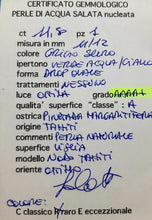 CERTIFICATO GEMMOLOGICO
PERLE DI ACQUA SALATA nucleata
ct 11,8 pz 1
misura in mm 11/12
colore GRIGIO SCURO
ipertono VERDE ACQUA/GIALLO
forma DROP OVALE
trattamento NESSUNO
luce OTTIMA grado AAAA1
qualita' superfice "classe": A
ostrica PINCTADA MARGARITIFERA
origine TAHITI
commenti PERLA NATURALE
superfice LISCIA
modello NODO TAHITI
oriente OTTIMO
COLORE:
C classico Rraro E eccezzionale